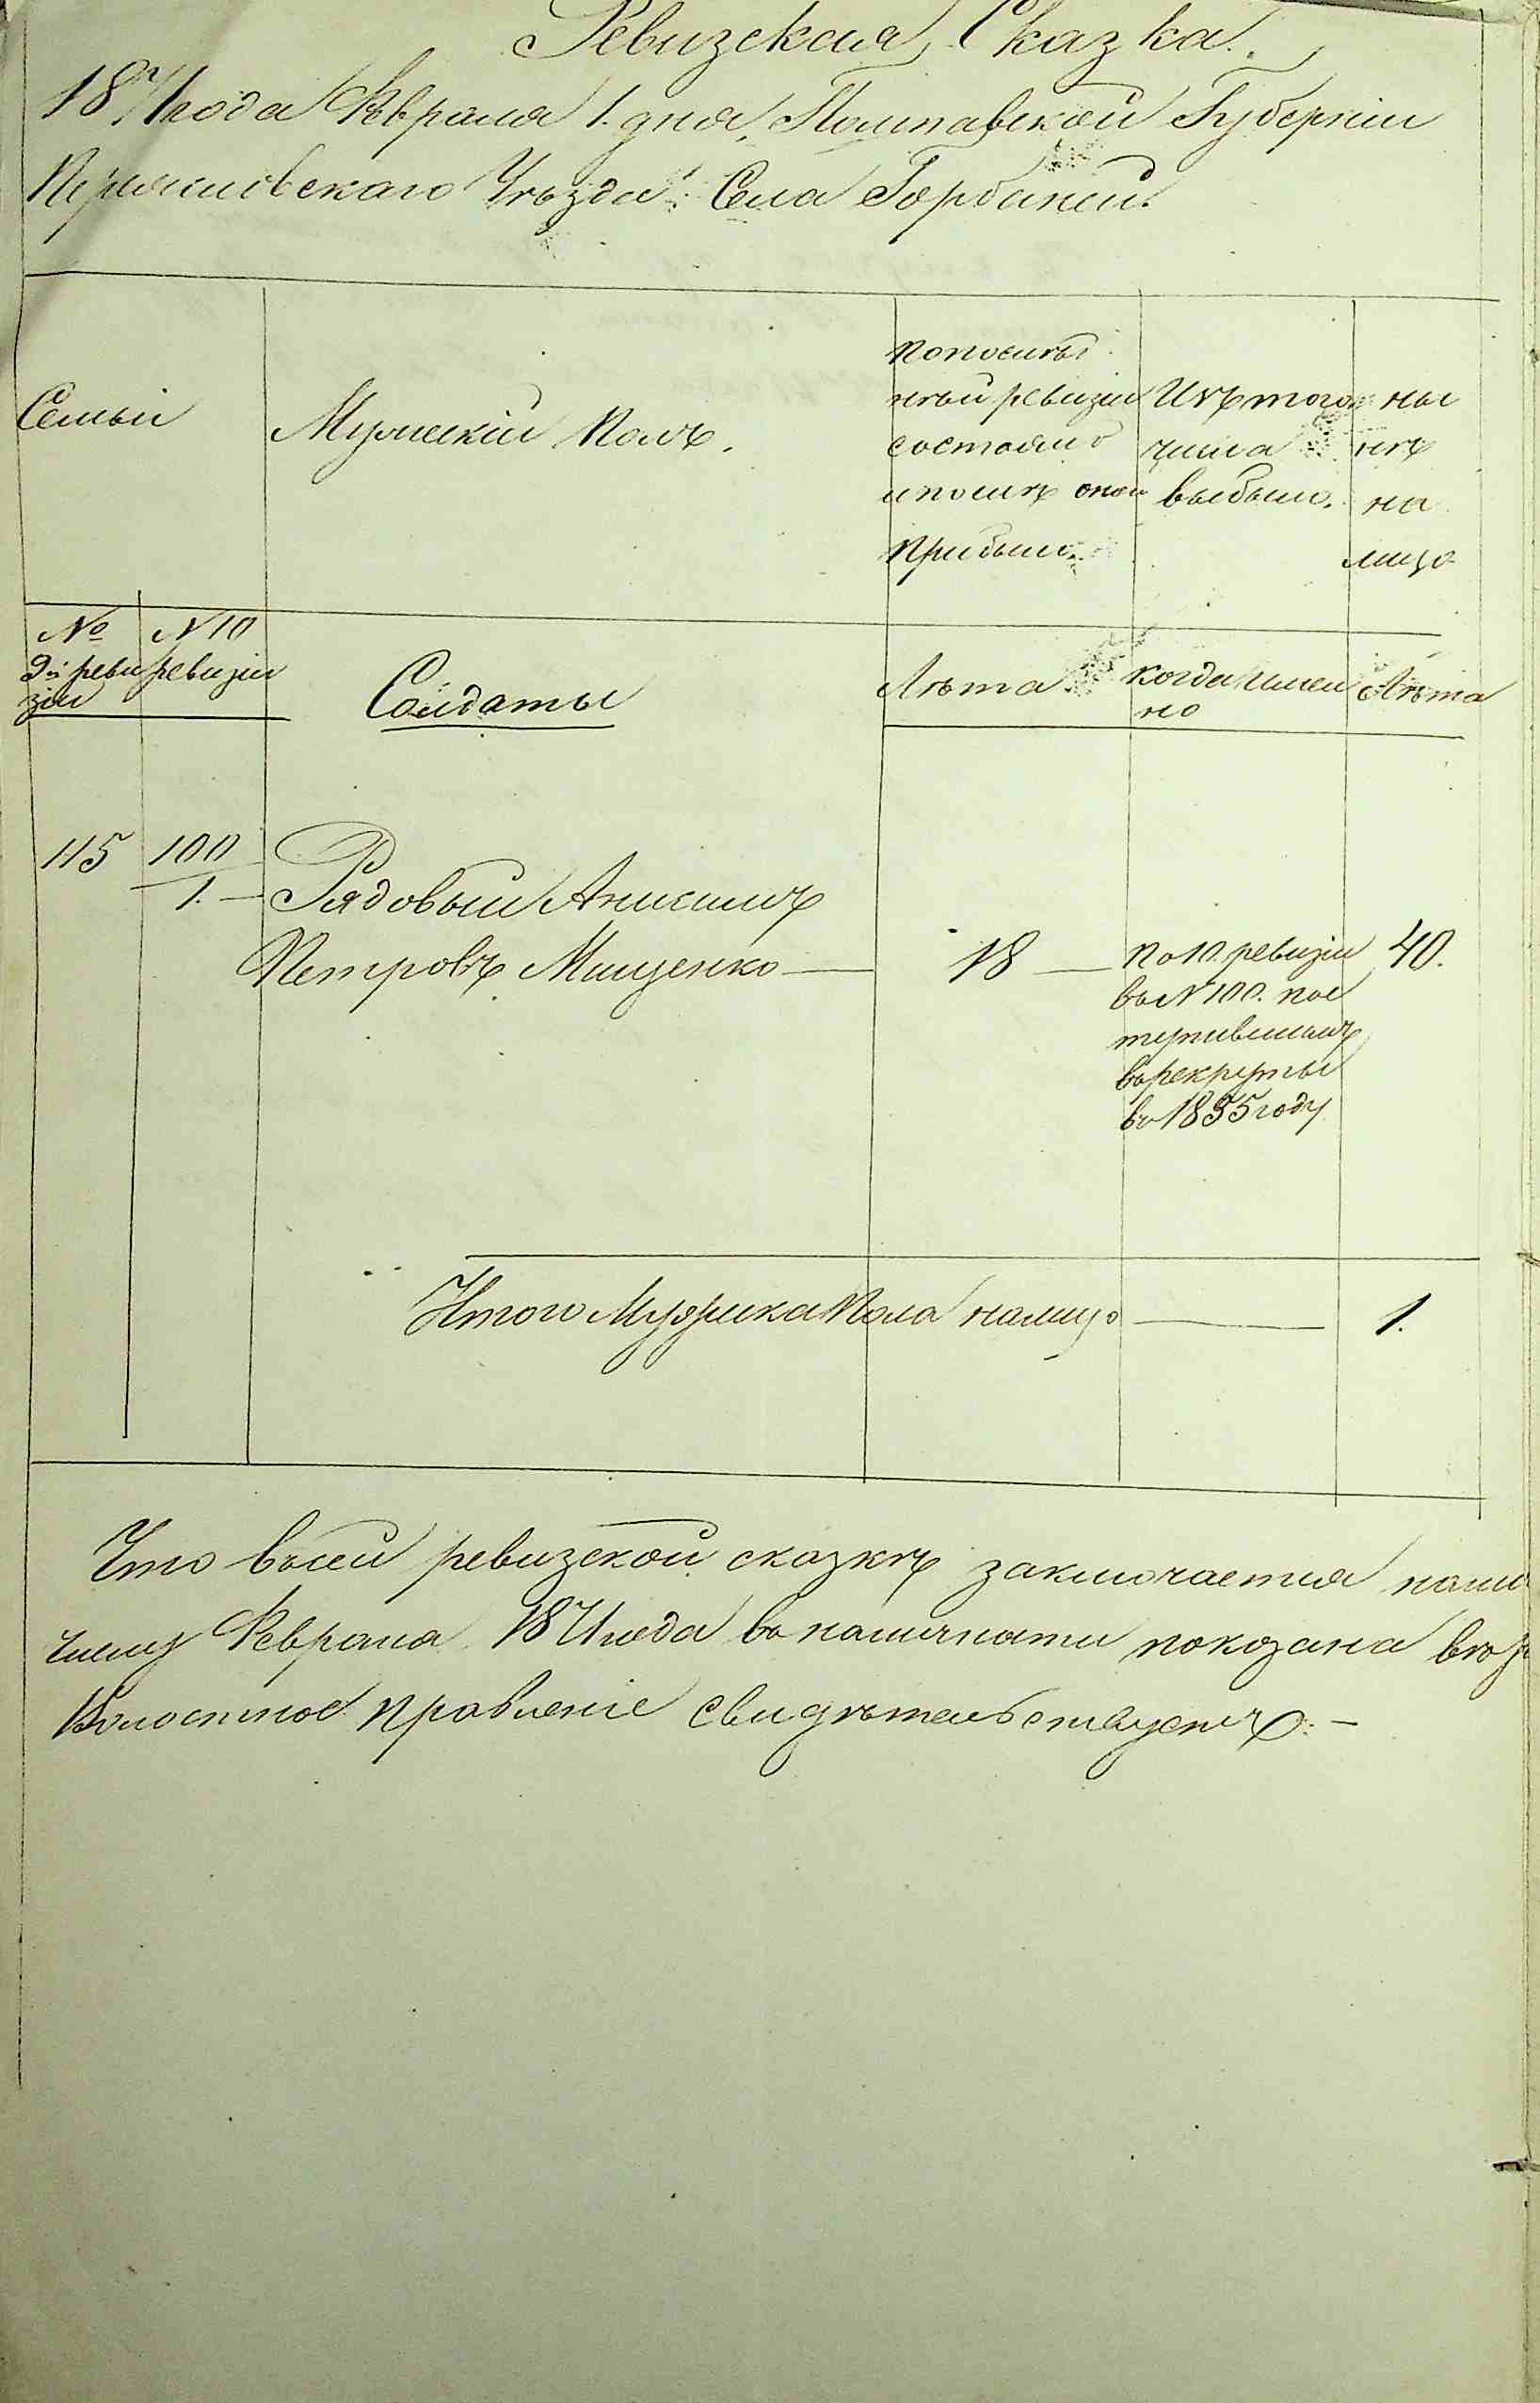 Ревизская Сказка.
1871 года Февраля 1. дня, Полтавской Губерніи
Переяславскаго Уѣзда Села Горбаней.
Семьи
Мужескій Полъ.
По послѣд
нѣй ревизіи
состояло
и послѣ оной
Прибыло.
Изъ того
числа
выбыло.
ны
нѣ
на
лицо
№
9й реви
зіи
№ 10
ревизіи
Солдаты
Лѣта
когда имен
но
Лѣта
115
100
1.
Рядовый Анисимъ
Петровъ Мищенко
18
По 10. ревизіи
в № 100. пос
тупившимъ
в рекруты
во 1855 году
40.
Итого Мужеска Пола налицо
1.
Что в сей ревизской сказкѣ заключается
числу Февраля 1871 года во наличности показана
Волостное правленіе свидѣтельствуетъ. —